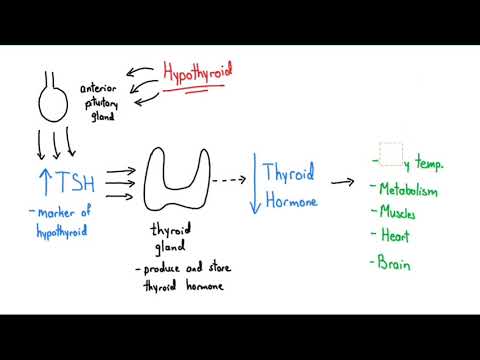 Hypothyroid
anterior
pituitary
gland
↑ TSH
- marker of
hypothyroid
thyroid
gland
- produce and store
thyroid hormone
↓ Thyroid
Hormone
- y temp.
- Metabolism
- Muscles
- Heart
- Brain